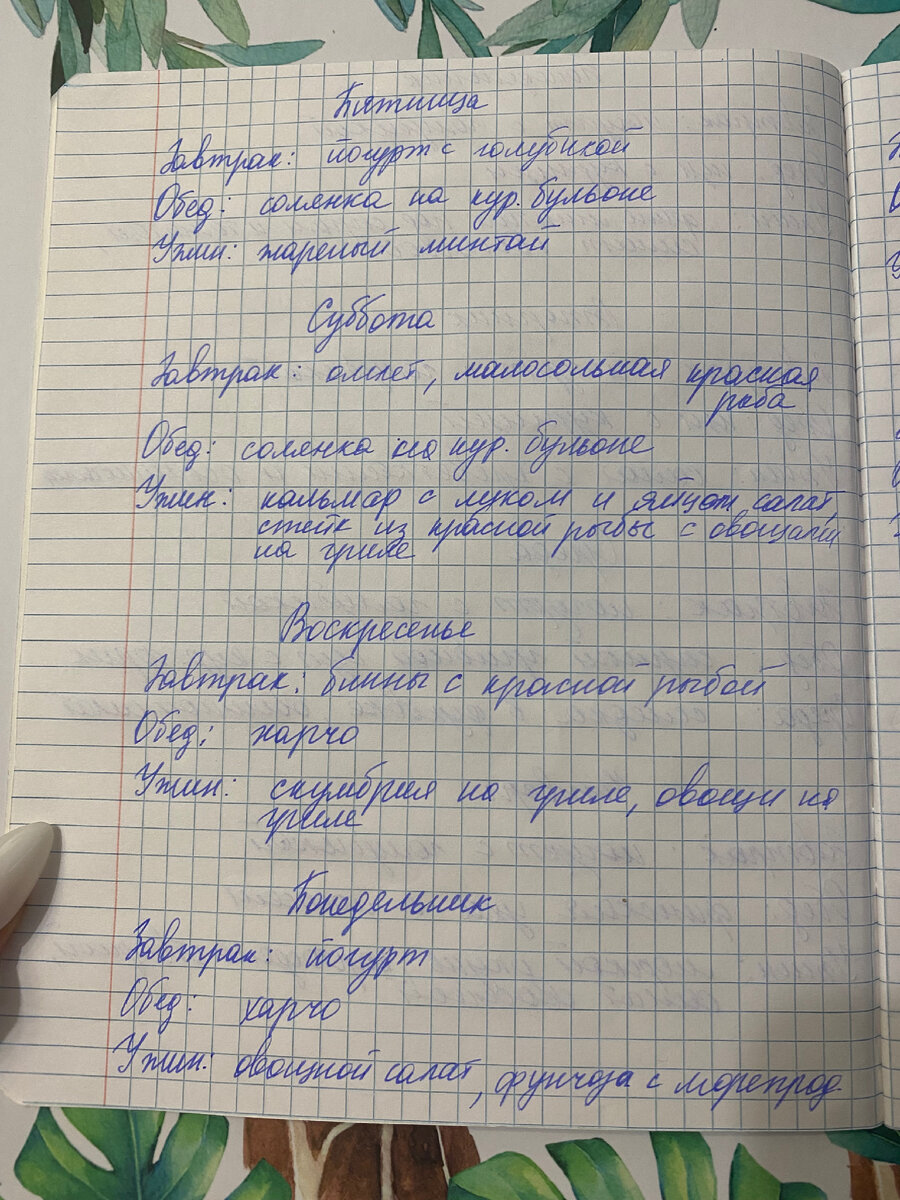 Пятница
Завтрак: йогурт с голубикой
Обед: солянка на кур. бульоне
Ужин: жареный минтай
Суббота
Завтрак: омлет, малосольная красная
рыба
Обед: солянка на кур. бульоне
Ужин: кальмар с луком и яйцом салат,
стейк из красной рыбы с овощами
на гриле
Воскресенье
Завтрак: блины с красной рыбой
Обед: харчо
Ужин: скумбрия на гриле, овощи на
гриле
Понедельник
Завтрак: йогурт
Обед: харчо
Ужин: овощной салат, фунчоза с морепрод.